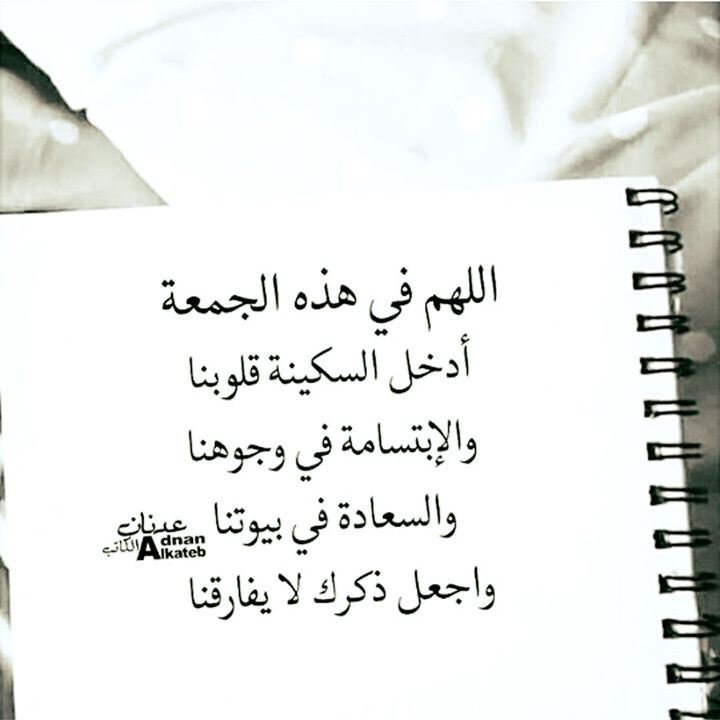 اللهم في هذه الجمعة
أدخل السكينة قلوبنا
والإبتسامة في وجوهنا
والسعادة في بيوتنا
واجعل ذكرك لا يفارقنا
عدنان الكاتب
Adnan Alkateb